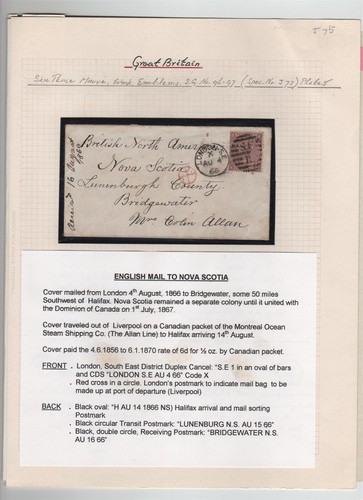 £75
Great Britain
Six Pence Mauve, Wmk Emblems. S.G. No. 96-97 (Spec. No. J73) Plate 5
British North Amer
Nova Scotia
Lunenburgh County
Bridgewater
Mrs Colin Allan
16 August
1866
LONDON S.E
X
AU 4
66
S.E
1
ENGLISH MAIL TO NOVA SCOTIA
Cover mailed from London 4th August, 1866 to Bridgewater, some 50 miles
Southwest of Halifax. Nova Scotia remained a separate colony until it united with
the Dominion of Canada on 1st July, 1867.
Cover traveled out of Liverpool on a Canadian packet of the Montreal Ocean
Steam Shipping Co. (The Allan Line) to Halifax arriving 14th August.
Cover paid the 4.6.1856 to 6.1.1870 rate of 6d for ½ oz. by Canadian packet.
FRONT . London, South East District Duplex Cancel: "S.E 1 in an oval of bars
and CDS "LONDON S.E AU 4 66" Code X
. Red cross in a circle. London's postmark to indicate mail bag to be
made up at port of departure (Liverpool)
BACK . Black oval: "H AU 14 1866 NS) Halifax arrival and mail sorting
Postmark
. Black circular Transit Postmark: "LUNENBURG N.S. AU 15 66"
. Black, double circle, Receiving Postmark: "BRIDGEWATER N.S.
AU 16 66"